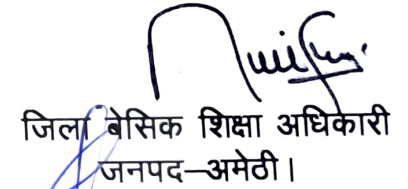 जिला बेसिक शिक्षा अधिकारी
जनपद–अमेठी।